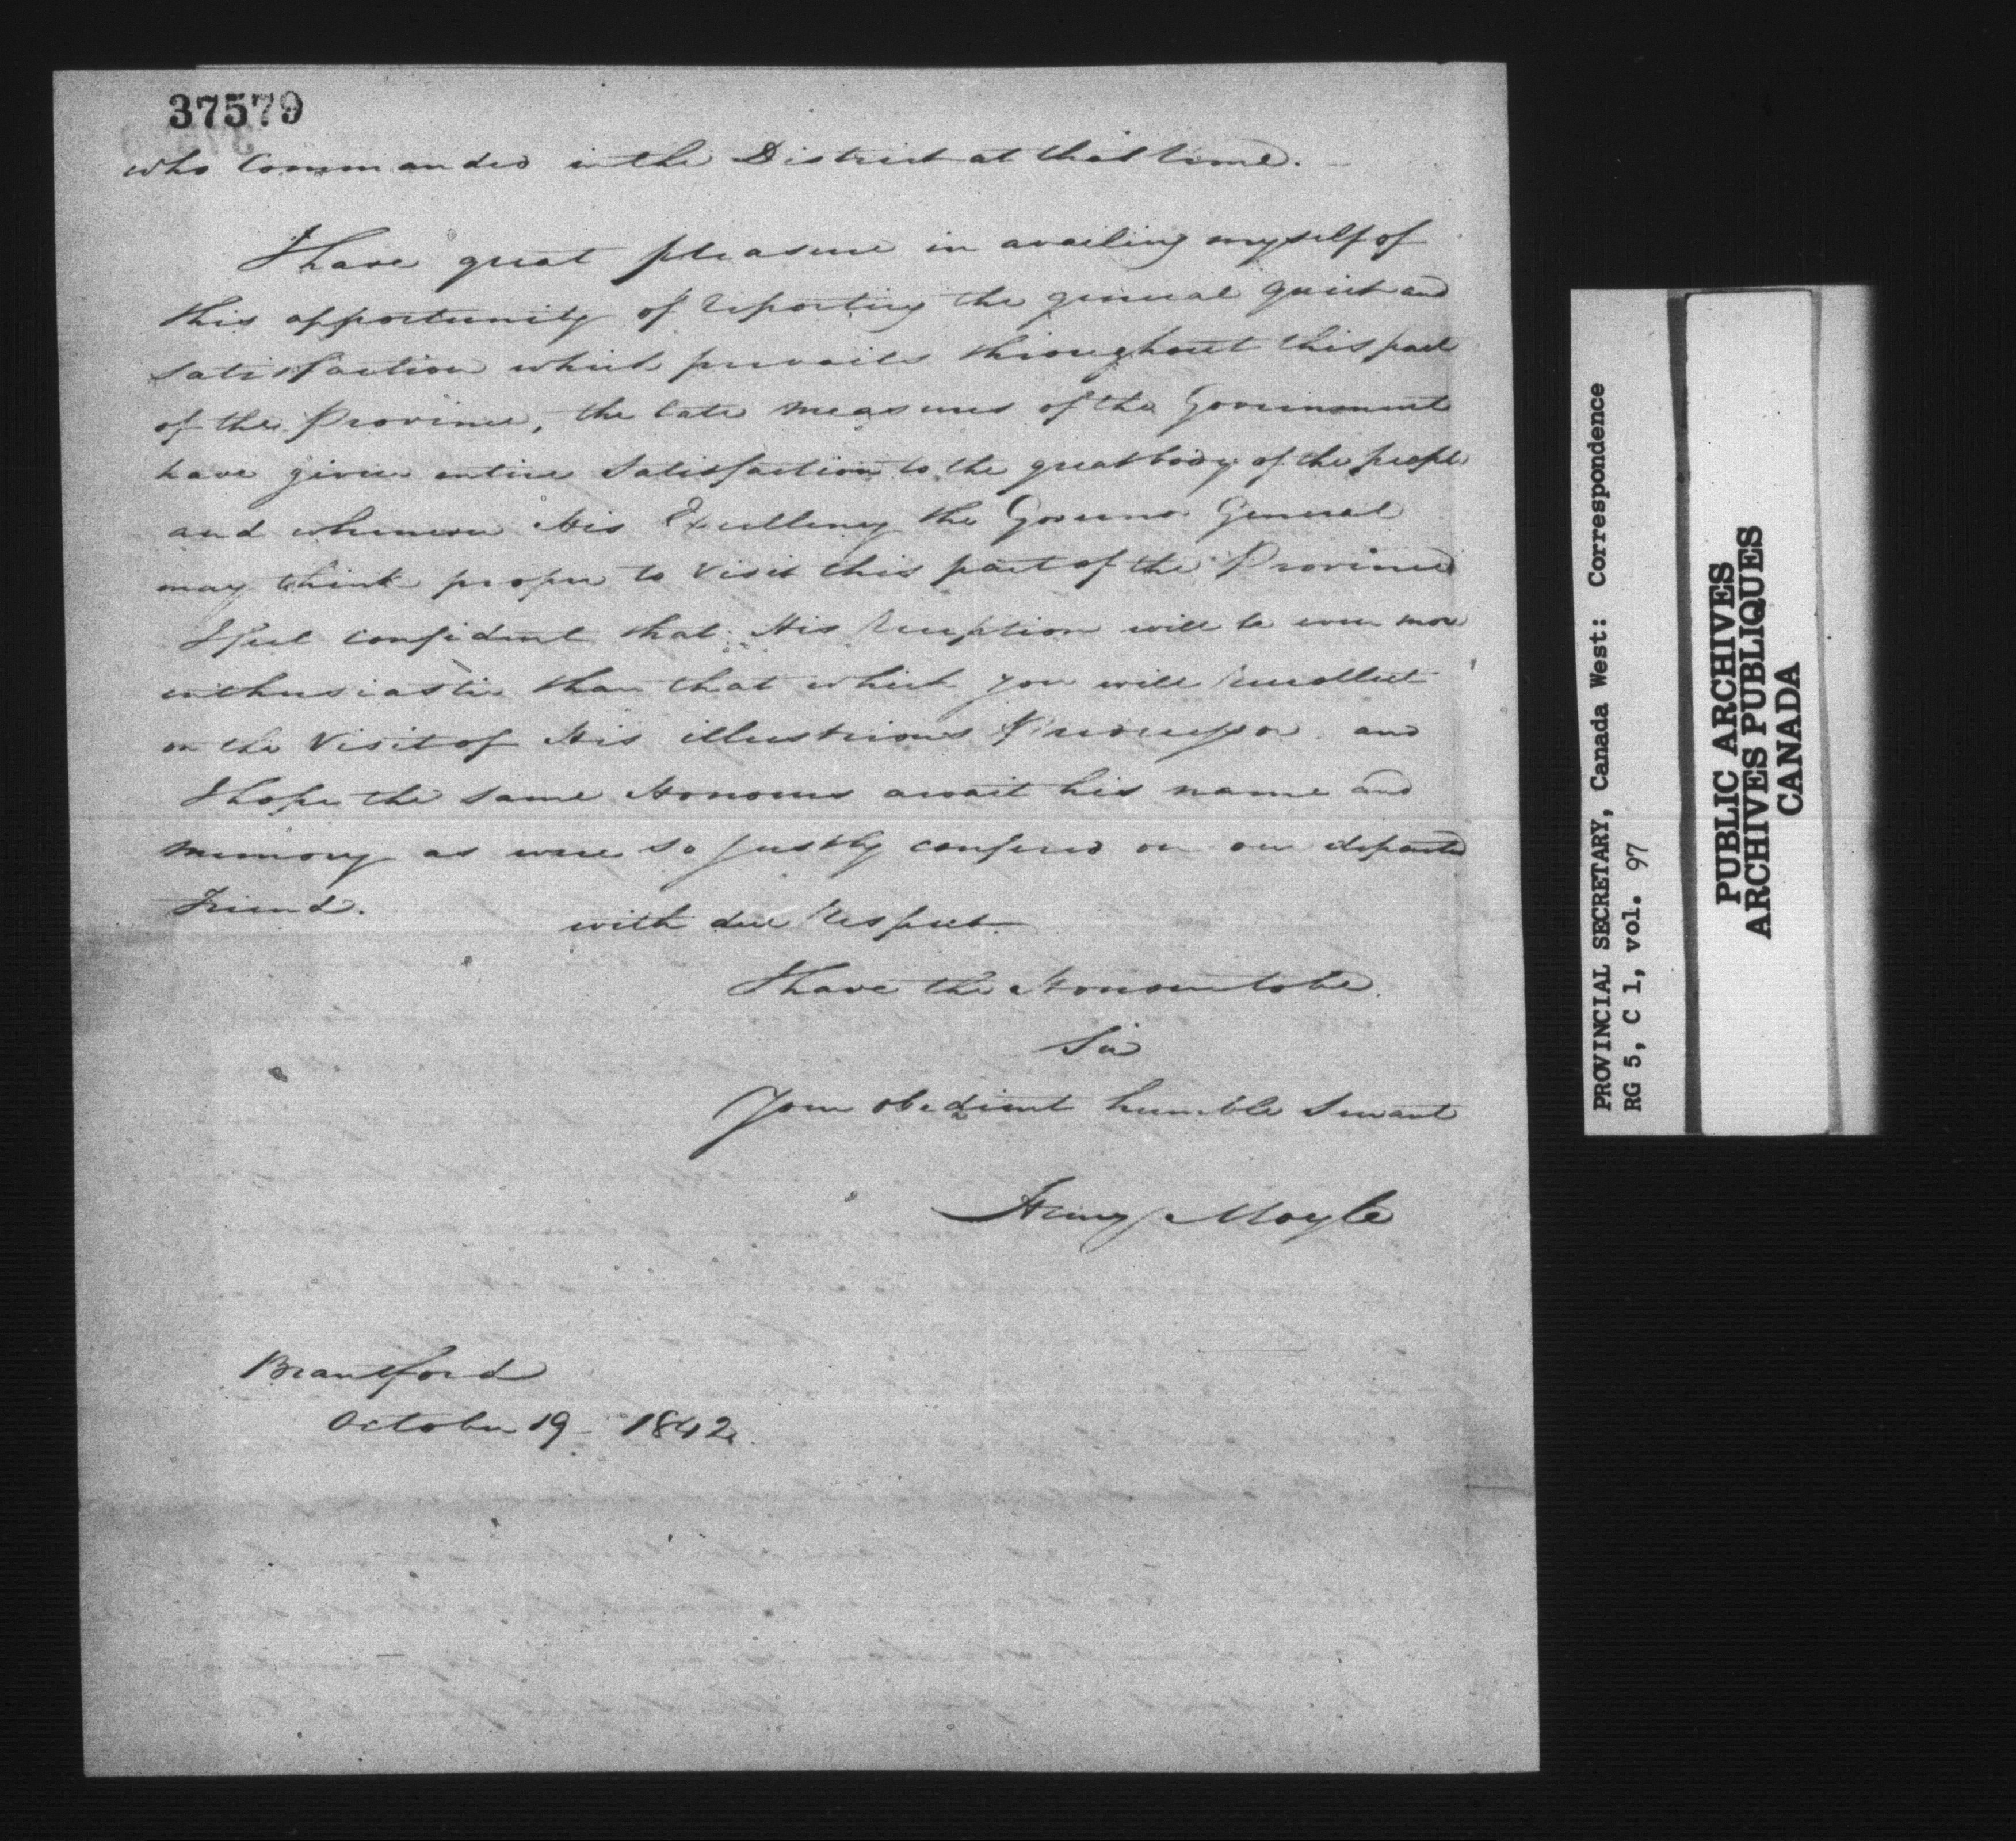 37579
who Commanded in the District at that time.
I have great pleasure in availing myself of
this opportunity of reporting the general quiet and
satisfaction which prevails throughout this part
of the Province, the late measures of the Government
have given entire Satisfaction to the great body of the people
and whenever His Excellency the Governor General
may think proper to Visit this part of the Province
I feel confident that His Reception will be even more
enthusiastic than that which you will recollect
on the Visit of His illustrious Predecessor and
I hope the same Honours await his name and
memory as were so justly confered on our departed
Friend.
with due Respect
I have the Honour to be
Sir
Your obedient humble Servant
Henry Moyle
Brantford
October 19 - 1842.
PROVINCIAL SECRETARY, Canada West: Correspondence
RG 5, C 1, vol. 97
PUBLIC ARCHIVES
ARCHIVES PUBLIQUES
CANADA